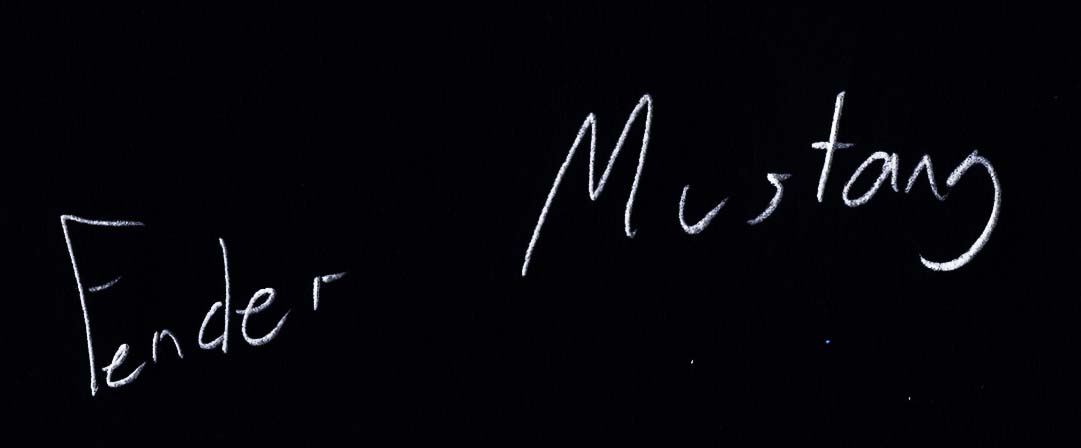 Fender Mustang